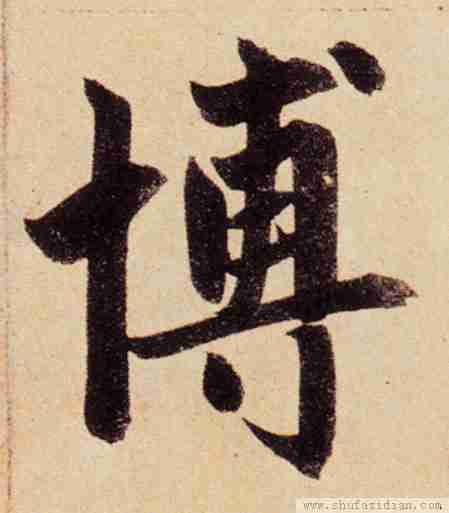 博
www.shufazidian.com